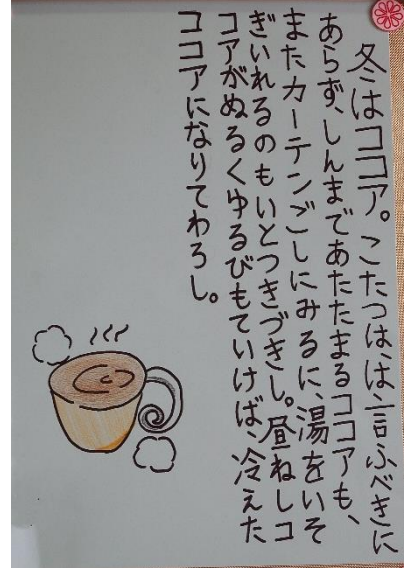 冬はココア。こたつは、は言ふべきに
あらず、しんまであたたまるココアも、
またカーテンごしにみるに、湯をいそ
ぎいれるのもいとつきづきし。昼ねしコ
コアがぬるくゆるびもていけば、冷えた
ココアになりてわろし。